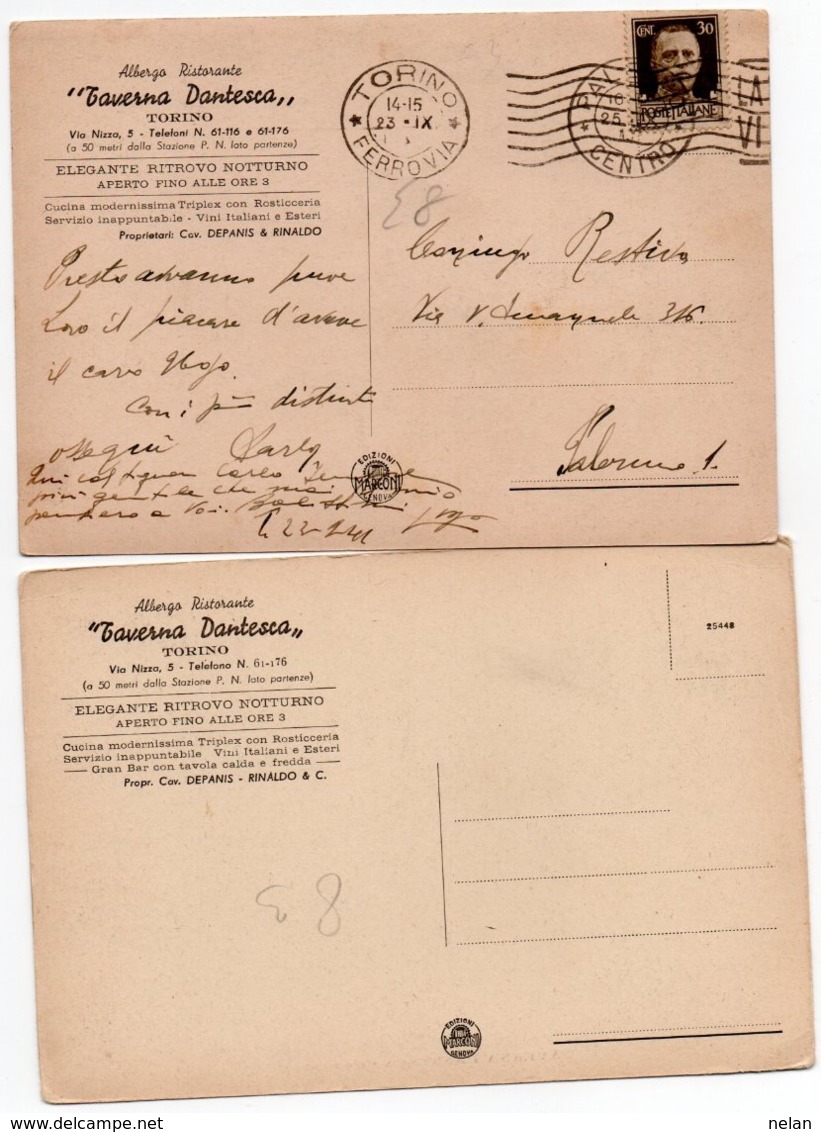 Albergo Ristorante
"Taverna Dantesca„
TORINO
Via Nizza, 5 - Telefoni N. 61-116 e 61-176
(a 50 metri dalla Stazione P. N. lato partenze)
ELEGANTE RITROVO NOTTURNO
APERTO FINO ALLE ORE 3
Cucina modernissima Triplex con Rosticceria
Servizio inappuntabile - Vini Italiani e Esteri
Proprietari: Cav. DEPANIS & RINALDO
TORINO
14-15
23 · IX
FERROVIA
PAL
16
25
CENTRO
CENT. 30
POSTE ITALIANE
LA
VI
E8
Presto avranno pure
Loro il piacere d'avere
il caro Ugo.
Con i più distinti
ossequi Carlo
Restivo
Via V. 316.
Palermo 1.
EDIZIONI
MARCONI
GENOVA
Albergo Ristorante
"Taverna Dantesca„
TORINO
Via Nizza, 5 - Telefono N. 61-176
(a 50 metri dalla Stazione P. N. lato partenze)
ELEGANTE RITROVO NOTTURNO
APERTO FINO ALLE ORE 3
Cucina modernissima Triplex con Rosticceria
Servizio inappuntabile Vini Italiani e Esteri
Gran Bar con tavola calda e fredda
Propr. Cav. DEPANIS - RINALDO & C.
25448
E8
EDIZIONI
MARCONI
GENOVA
nelan